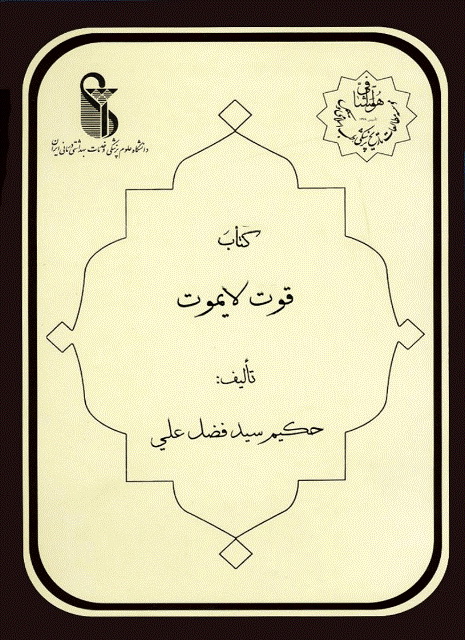 هوالشافی
دانشگاه علوم پزشکی و خدمات بهداشتی درمانی ایران
کتاب
قوت لایموت
تألیف:
حکیم سید فضل علي